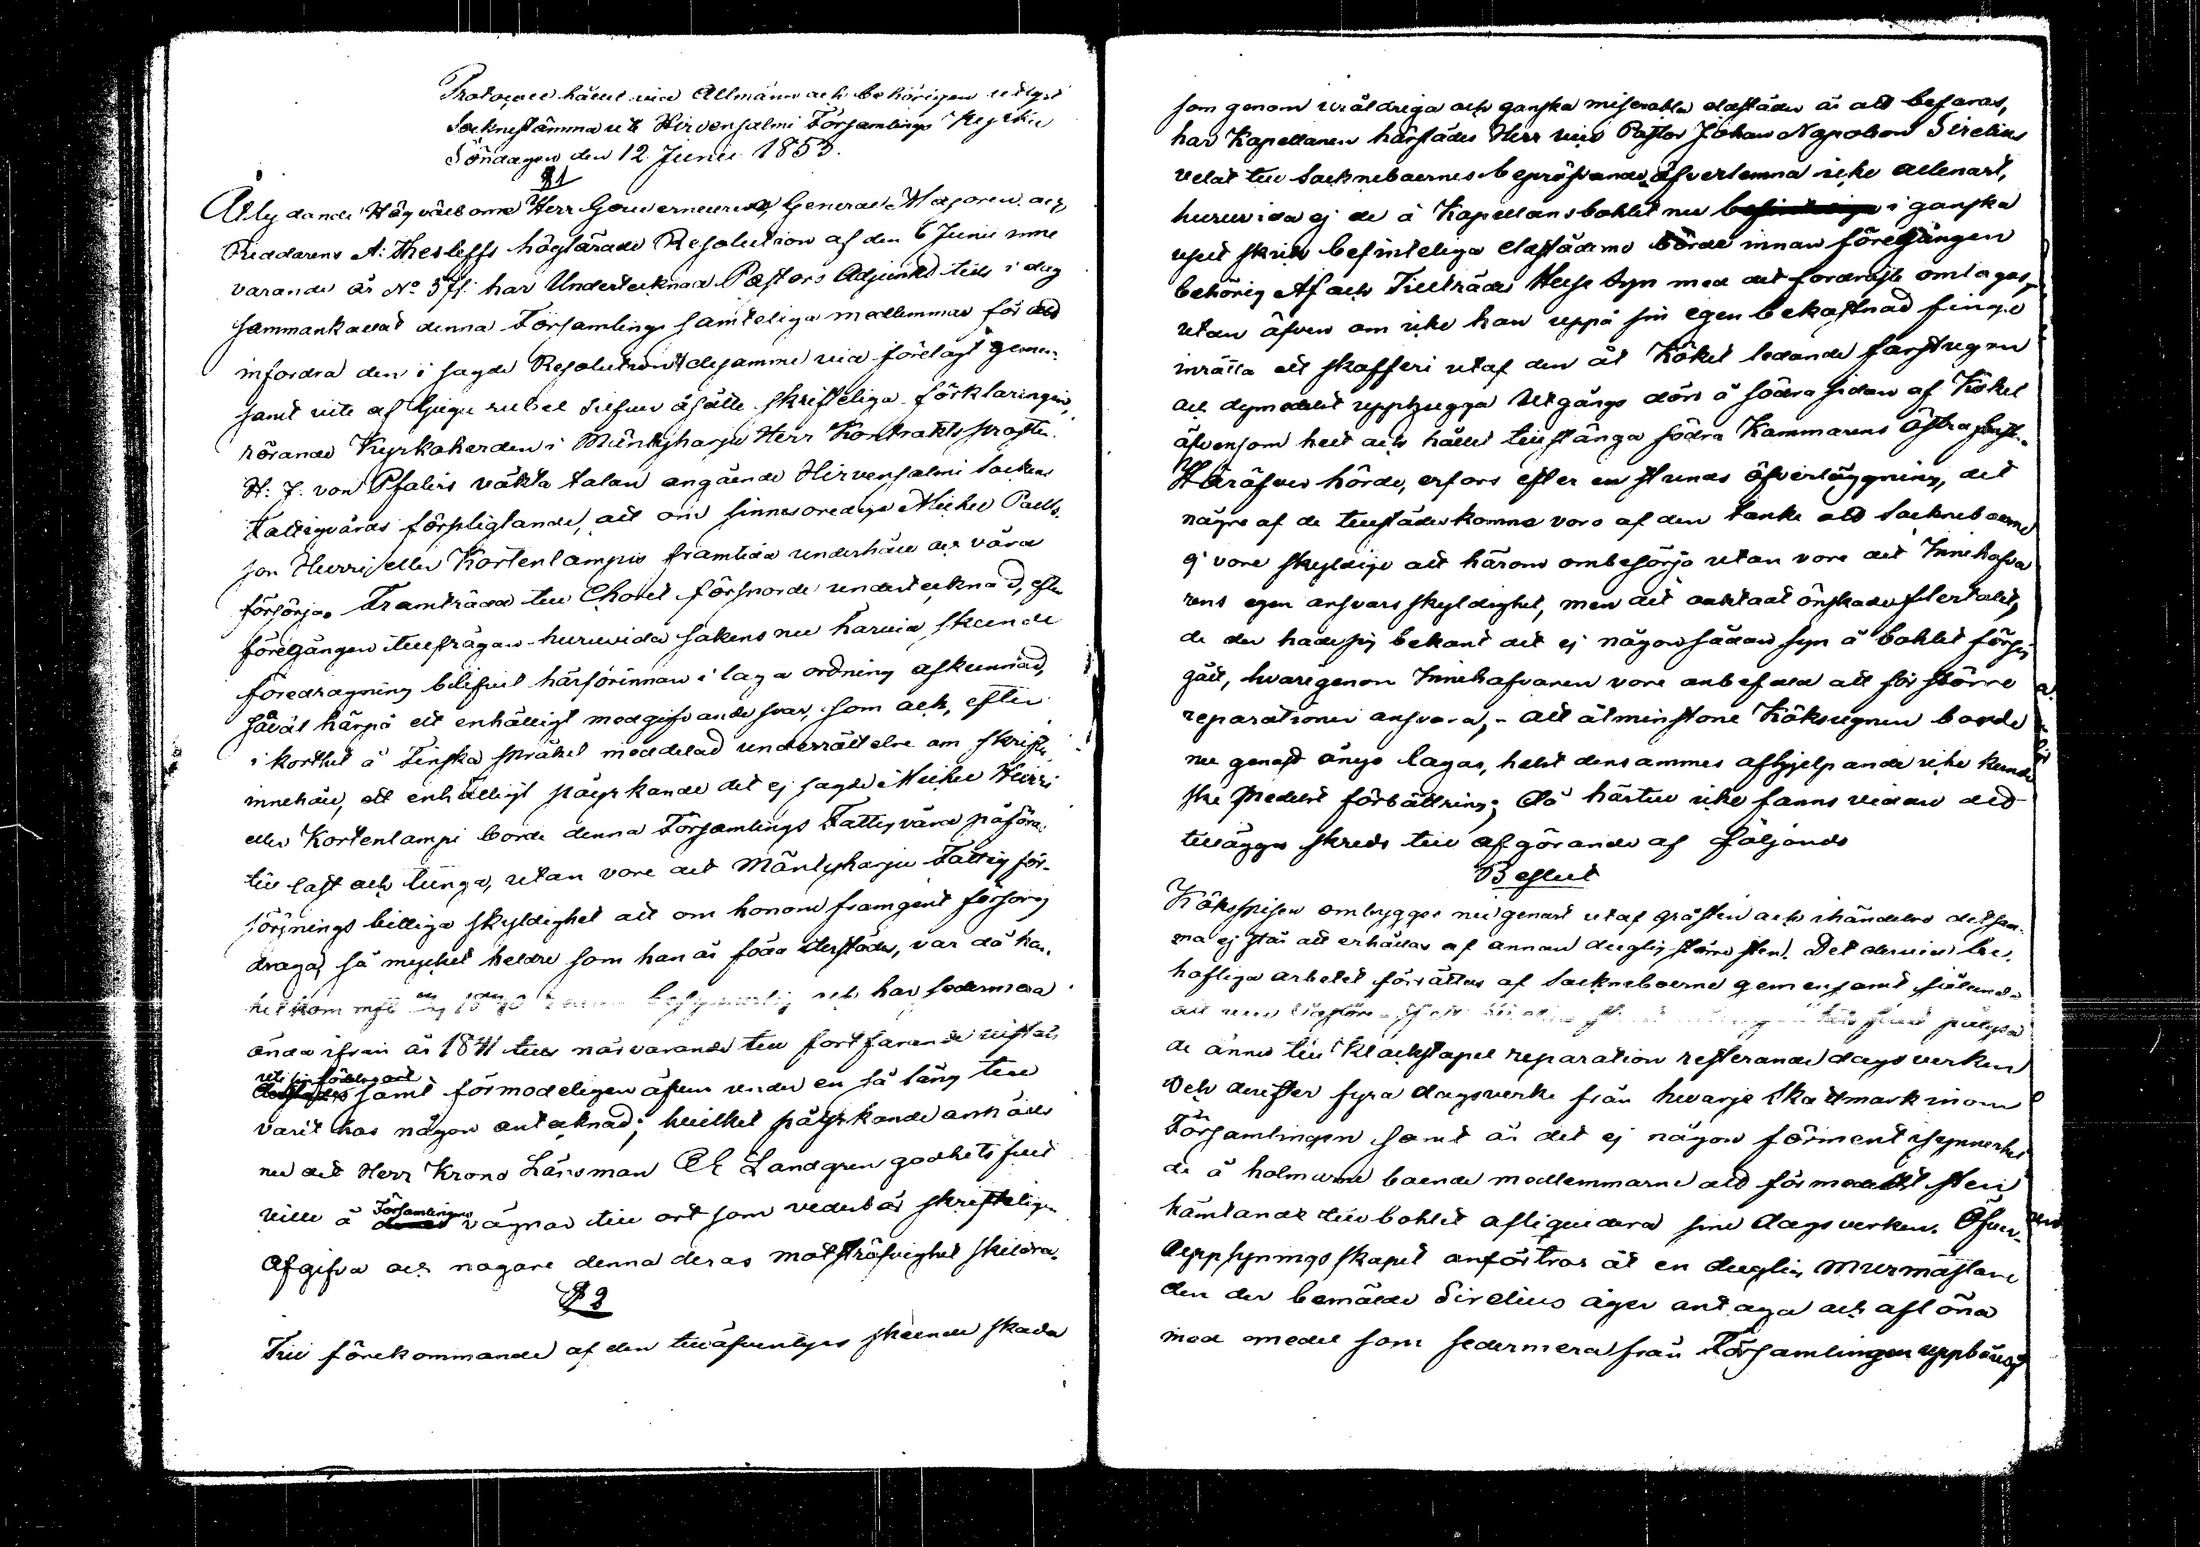 Protocoll hållet vid Allmänn och behörigen utlyst
Socknestämma uti Hirvensalmi Församlings Kyrka
Söndagen den 12 Junii 1853.
§1
Åtlydande Högvälborne Herr Gouverneuren, General Majoren och
Riddarens A: Thesleffs höglärade Resolution af den 6 Junii inne
varande år No har Undertecknad Pastors Adjunkt tills i dag
sammankallat denna Församlings samteliga medlemmar för att
infordra den i sagde Resolution desamme vid förelagt gemen-
samt vite af tjugu rubel silfver ålätte skrifteliga förklaringen,
rörande Kyrkoherden i Mäntyharju Herr Kontrakts prosten
H: J. von Pfalers väkta talan angående Hirvensalmi Sockens
Fattigvårds förpligtande, att om sinnesoredige Michel Pauls
son Hurri eller Kortenlampis framtida underhåll och vård
försörja. Framträdd till Choret försporde undertecknad, efter
föregången tillfrågan huruvida sakens nu härvid skeende
föredragning blifvit härförinnan i laga ordning afkunnad,
såväl härpå ett enhälligt medgifvande svar, som ock, efter
i korthet å Finska språket meddelad underrättelse om skriftens
innehåll, ett enhälligt påyrkande det ej sagde Michel Hurri
eller Kortenlampi borde denna Församlings Fattigvård påföras
till last och tunga, utan vore det Mäntyharju Fattigför-
sörjnings billiga skyldighet att om honom framgent försorg
draga, så mycket heldre som han är född derstädes, var då han
hitkom och har sedermera
ända ifrån år 1841 till närvarande till fortfarande vistats
uti sin födelseort
samt förmodeligen äfven under en så lång tid
varit hos någon antecknad; hvilket påyrkande anhölls
nu det Herr Krono Länsman Landgren godhetsfullt
ville å Församlingens vägnar till ort som vederbör skriftligen
Afgifva och nogare denna deras motsträfvighet skildra.
§ 2
Till förekommande af den tilläfventyrs skeende skada
som genom uråldriga och ganska miserabla eldstäder är att befaras,
har Kapellanen härstädes Herr vice Pastor Johan Napoleon Sirelius
velat till Sockneboernes bepröfvande öfverlemna icke allenast,
huruvida ej de å Kapellansbohlet nu i ganska
uselt skick befinteliga eldstäderne borde innan föregången
behörig Af och Tillträdes Huse Syn med det fordrasta omlagas,
utan äfven om icke han uppå sin egen bekostnad finge
inrätta ett skafferi utaf den åt Köket ledande farstugun
och dymedelst upphugga Utgångs dörr å södra sidan af Köket
äfvensom helt och hållet tillstänga södra Kammarens Östra fönster.
Häröfver hörde, erfors efter en stunds öfverläggning, det
några af de tillstädeskomna voro af den tanke att Sockneboerne
ej vore skyldige att härom ombesörja utan vore det Innehafva
rens egen ansvars skyldighet, men det oaktadt önskade flertalet,
de der hade sig bekant det ej någon sådan syn å bohlet försig
gått, hvarigenom Innehafvaren vore anbefald att för större
reparationer ansvara,- att åtminstone Köksugnen borde
nu genast ånyo lagas, helst densammes afhjelpande icke kunde
ske medelst förbättring; då härtill icke fanns vidare att
tillägga skreds till afgörande af följande
Beslut
Köksspisen ombygges nu genast utaf gråsten och ihändelse det sam-
ma ej står att erhållas af annan duglig större sten. Det dervid be-
höfliga arbetet förrättas af Sockneboerne gemensamt sålunda
att pålysa
de ännu till Klockstapel reparation resterande dagsverken
och derefter fyra dagsverke från hvarje Skattmark inom
Församlingen samt är det ej någon förment isynnerhet
de å holmarne boende medlemmarne att förmedelst sten
hämtande till bohlet afliqvidera sine dagsverken. Öfver-
Uppsyningsskapet anförtros åt en duglig murmästare
den der bemälde Sirelius äger antaga och aflöna
med medel som sedermera från Församlingen uppbäras